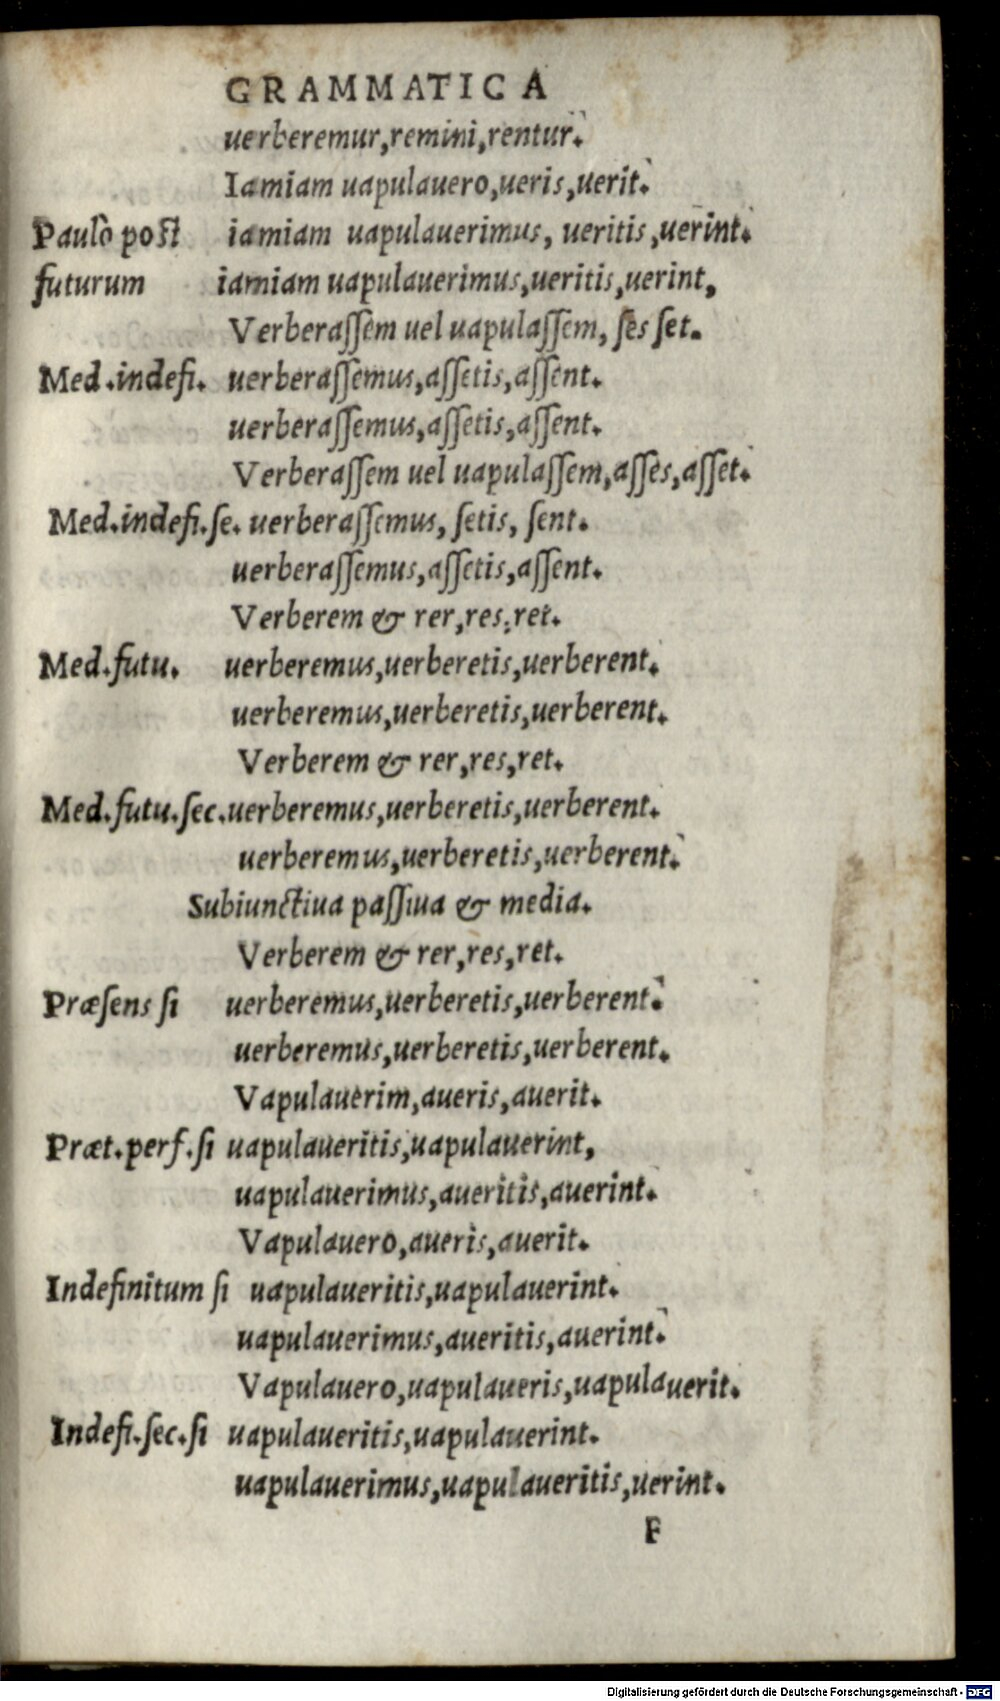 GRAMMATICA
uerberemur,remini,rentur.
Iamiam uapulauero,ueris,uerit.
Paulo post iamiam uapulauerimus, ueritis,uerint.
futurum iamiam uapulauerimus,ueritis,uerint,
Verberaſſem uel uapulaſſem, ſes ſet.
Med.indefi. uerberaſſemus,aſſetis,aſſent.
uerberaſſemus,aſſetis,aſſent.
Verberaſſem uel uapulaſſem,aſſes,aſſet.
Med.indefi.ſe. uerberaſſemus, ſetis, ſent.
uerberaſſemus,aſſetis,aſſent.
Verberem & rer,res,ret.
Med.futu. uerberemus,uerberetis,uerberent.
uerberemus,uerberetis,uerberent.
Verberem & rer,res,ret.
Med.futu.ſec.uerberemus,uerberetis,uerberent.
uerberemus,uerberetis,uerberent.
Subiunctiua paſſiua & media.
Verberem & rer,res,ret.
Præſens ſi uerberemus,uerberetis,uerberent.
uerberemus,uerberetis,uerberent.
Vapulauerim,aueris,auerit.
Præt.perf.ſi uapulaueritis,uapulauerint,
uapulauerimus,aueritis,auerint.
Vapulauero,aueris,auerit.
Indefinitum ſi uapulaueritis,uapulauerint.
uapulauerimus,aueritis,auerint.
Vapulauero,uapulaueris,uapulauerit.
Indefi.ſec.ſi uapulaueritis,uapulauerint.
uapulauerimus,uapulaueritis,uerint.
F
Digitalisierung gefördert durch die Deutsche Forschungsgemeinschaft - DFG